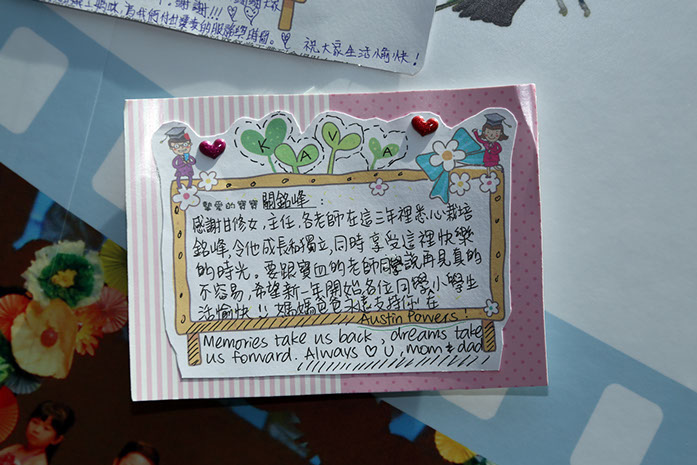 謝謝!!!
祝大家生活愉快!
KAVA
摯愛的寶寶 關銘峰
感謝甘修女,主任,各老師在這三年裡悉心栽培
銘峰,令他成長和獨立,同時享受這裡快樂
的時光。要跟寶血的老師同學說再見真的
不容易,希望新一年開始各位同學小學生
活愉快!! 媽媽爸爸永遠支持你 在
Austin Powers!
Memories take us back, dreams take
us forward. Always ♡ U, mom & dad